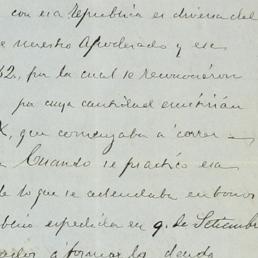 con esa Republica es diversa del
e nuestro Apoderado y ese
62, por la cual se reconocieron
por cuya cantidad emitirían
X, que comenzaba á correr
Cuando se practicó esa
de lo que se adeudaba en bonos
blico espedida en 9. de Setiembre
á formar los deuda